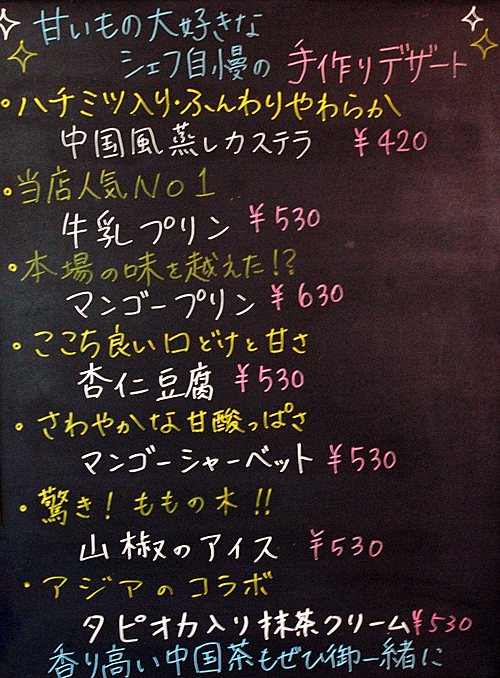 甘いもの大好きな
シェフ自慢の 手作りデザート
・ハチミツ入り・ふんわりやわらか
中国風蒸しカステラ ¥420
・当店人気NO1
牛乳プリン ¥530
・本場の味を越えた!?
マンゴープリン ¥630
・ここち良い口どけと甘さ
杏仁豆腐 ¥530
・さわやかな甘酸っぱさ
マンゴーシャーベット ¥530
・驚き!ももの木!!
山椒のアイス ¥530
・アジアのコラボ
タピオカ入り抹茶クリーム¥530
香り高い中国茶もぜひ御一緒に